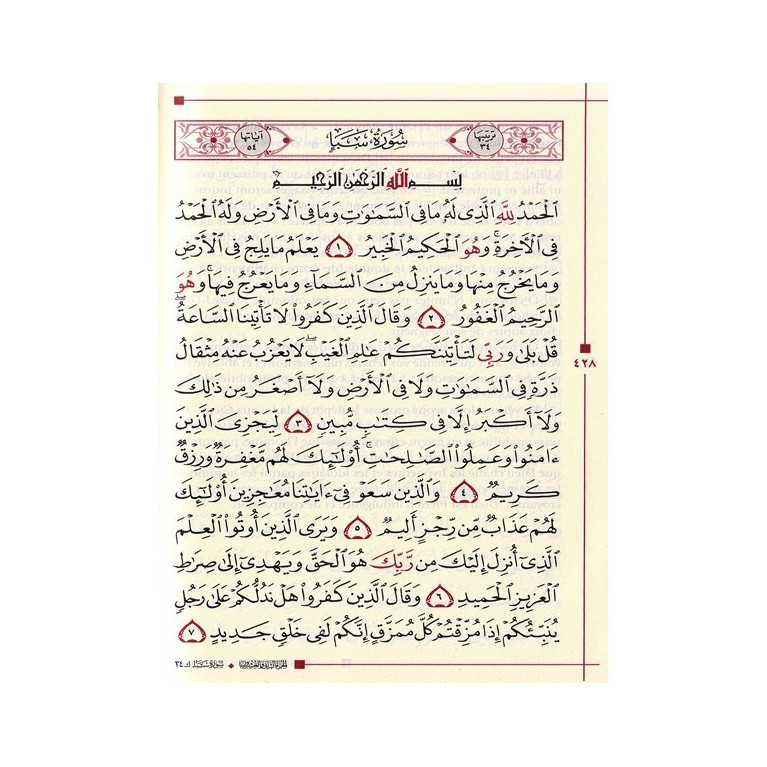 ترتيبها ٣٤ سُورَةُ سَبَإٍ آياتها ٥٤
بِسْمِ اللَّهِ الرَّحْمَٰنِ الرَّحِيمِ
الْحَمْدُ لِلَّهِ الَّذِي لَهُ مَا فِي السَّمَٰوَٰتِ وَمَا فِي الْأَرْضِ وَلَهُ الْحَمْدُ
فِي الْآخِرَةِ ۚ وَهُوَ الْحَكِيمُ الْخَبِيرُ ١ يَعْلَمُ مَا يَلِجُ فِي الْأَرْضِ
وَمَا يَخْرُجُ مِنْهَا وَمَا يَنزِلُ مِنَ السَّمَآءِ وَمَا يَعْرُجُ فِيهَا ۚ وَهُوَ
الرَّحِيمُ الْغَفُورُ ٢ وَقَالَ الَّذِينَ كَفَرُوا۟ لَا تَأْتِينَا السَّاعَةُ ۖ
قُلْ بَلَىٰ وَرَبِّي لَتَأْتِيَنَّكُمْ عَٰلِمِ الْغَيْبِ ۖ لَا يَعْزُبُ عَنْهُ مِثْقَالُ
ذَرَّةٍ فِي السَّمَٰوَٰتِ وَلَا فِي الْأَرْضِ وَلَآ أَصْغَرُ مِن ذَٰلِكَ
وَلَآ أَكْبَرُ إِلَّا فِي كِتَٰبٍ مُّبِينٍ ٣ لِّيَجْزِيَ الَّذِينَ
ءَامَنُوا۟ وَعَمِلُوا۟ الصَّٰلِحَٰتِ ۚ أُو۟لَٰٓئِكَ لَهُم مَّغْفِرَةٌ وَرِزْقٌ
كَرِيمٌ ٤ وَالَّذِينَ سَعَوْ فِيٓ ءَايَٰتِنَا مُعَٰجِزِينَ أُو۟لَٰٓئِكَ
لَهُمْ عَذَابٌ مِّن رِّجْزٍ أَلِيمٌ ٥ وَيَرَى الَّذِينَ أُوتُوا۟ الْعِلْمَ
الَّذِيٓ أُنزِلَ إِلَيْكَ مِن رَّبِّكَ هُوَ الْحَقَّ وَيَهْدِيٓ إِلَىٰ صِرَٰطِ
الْعَزِيزِ الْحَمِيدِ ٦ وَقَالَ الَّذِينَ كَفَرُوا۟ هَلْ نَدُلُّكُمْ عَلَىٰ رَجُلٍ
يُنَبِّئُكُمْ إِذَا مُزِّقْتُمْ كُلَّ مُمَزَّقٍ إِنَّكُمْ لَفِي خَلْقٍ جَدِيدٍ ٧
٤٢٨
الجزء الثاني والعشرون ◆ سورة سبأ ك ٣٤